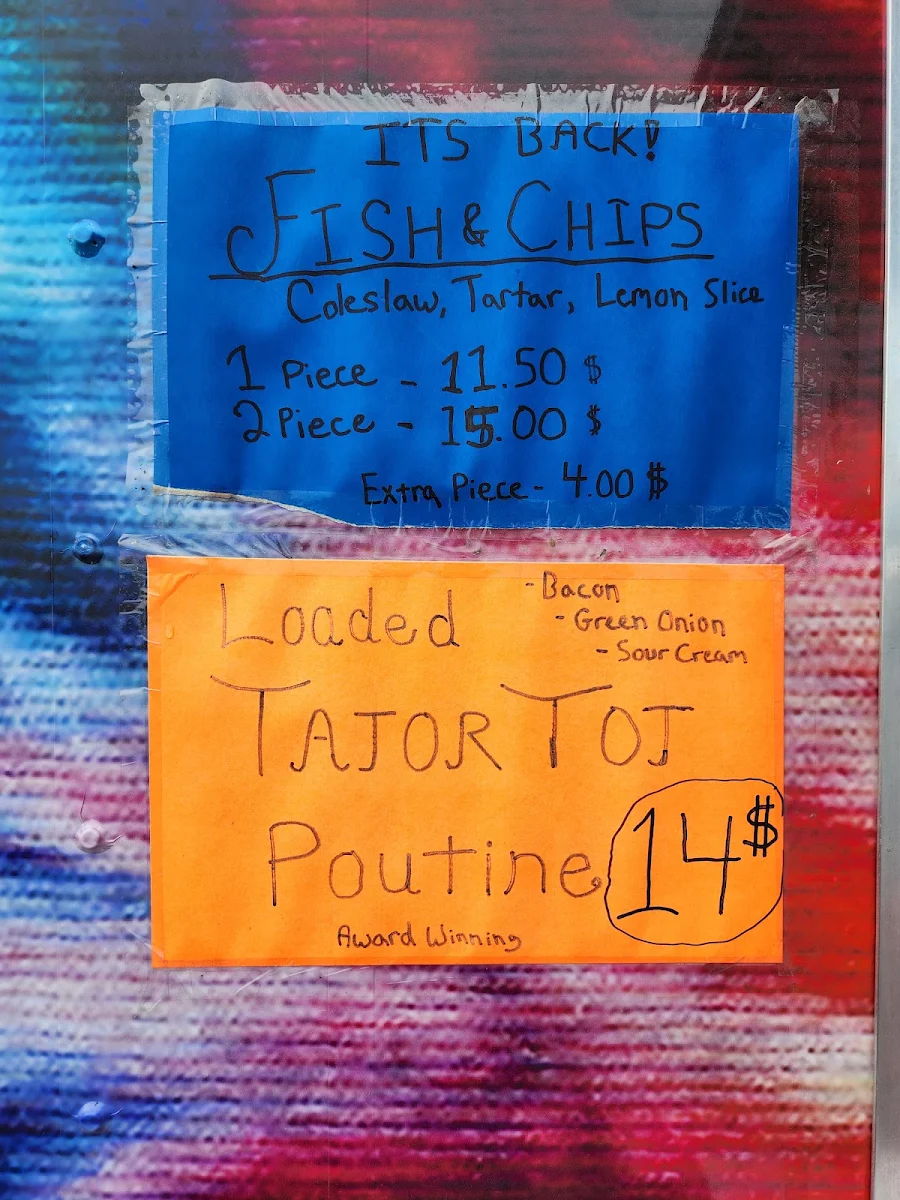 ITS BACK!
FISH & CHIPS
Coleslaw, Tartar, Lemon Slice
1 Piece - 11.50 $
2 Piece - 15.00 $
Extra Piece - 4.00 $
Loaded
- Bacon
- Green Onion
- Sour Cream
TATOR TOT
Poutine
14$
Award Winning